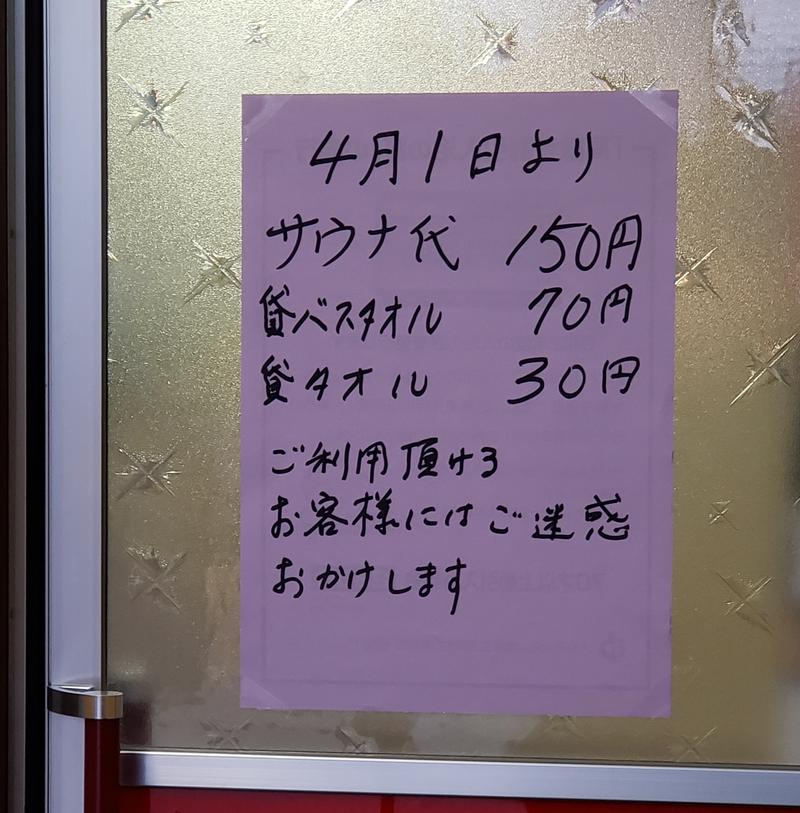 4月1日より
サウナ代 150円
貸バスタオル 70円
貸タオル 30円
ご利用頂ける
お客様にはご迷惑
おかけします